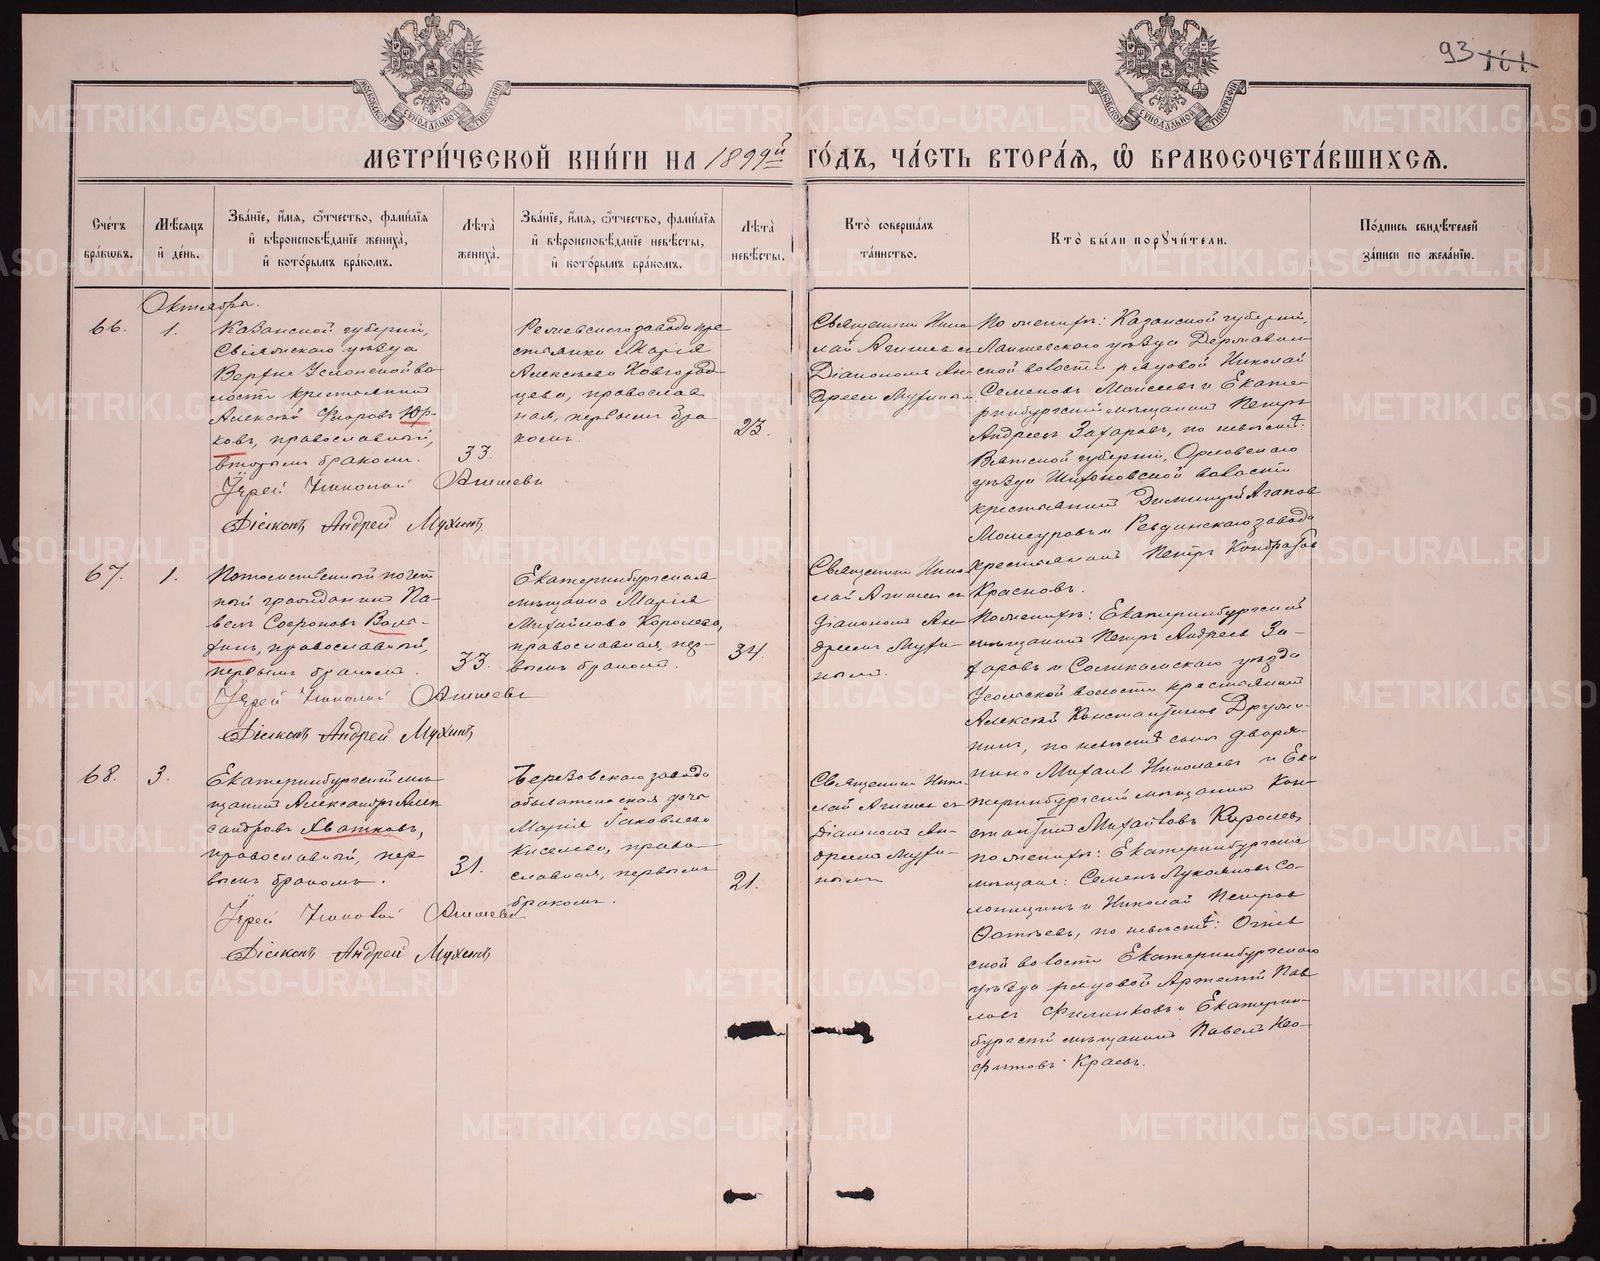 93 101
МОСКОВСКОЙ СѴНОДАЛЬНОЙ ТИПОГРАФІИ
МОСКОВСКОЙ СѴНОДАЛЬНОЙ ТИПОГРАФІИ
МЕТРИ́ЧЕСКОЙ КНИ́ГИ НА 1899й ГО́ДЪ, ЧА́СТЬ ВТОРА́Я, Ѽ БРАКОСОЧЕТА́ВШИХСЯ.
Сче́тъ
бра́ковъ.
Мѣ́сяцъ
и҆ де́нь.
Зва́нїе, и҆́мя, ѻ҆́тчество, фами́лїя
и҆ вѣроисповѣ́данїе жениха̀,
и҆ кото́рымъ бра́комъ.
Лѣ́та
жениха̀.
Зва́нїе, и҆́мя, ѻ҆́тчество, фами́лїя
и҆ вѣроисповѣ́данїе невѣ́сты,
и҆ кото́рымъ бра́комъ.
Лѣ́та
невѣ́сты.
Кто̀ соверша́лъ
та́инство.
Кто̀ бы́ли порꙋчи́тели.
По́дпись свидѣ́телей
за́писи по жела́нїю.
Октябрь.
66.
1.
Казанской губерніи,
Свіяжскаго уѣзда
Верхне Услонской во-
лости крестьянинъ
Алексѣй Ѳедоровъ Юр-
ковъ, православный,
вторымъ бракомъ.
33.
Іерей Николай Агишевъ
Діаконъ Андрей Мухинъ
Режевского завода кре-
стьянка Марія
Алексѣева Новгород-
цева, православ
ная, первымъ бра
комъ.
23.
Священникъ Нико
лай Агишевъ съ
Діакономъ Ан
дреемъ Мухинымъ
По женихѣ: Казанской губерніи,
Лаишевскаго уѣзда Державин-
ской волости рядовой Николай
Семеновъ Моисеевъ и Екате-
ринбургскій мѣщанинъ Петръ
Андреевъ Захаровъ, по невѣстѣ:
Вятской губерніи, Орловскаго
уѣзда Шихоновской волости
крестьянинъ Димитрій Агапов
Мошуровъ и Ревдинскаго завода
крестьянинъ Петръ Кондратов
Красновъ.
67.
1.
Потомственный почет
ный гражданинъ Па-
велъ Софроновъ Воло-
хинъ, православный,
первымъ бракомъ.
33.
Іерей Николай Агишевъ
Діаконъ Андрей Мухинъ
Екатеринбургская
мѣщанка Марія
Михайлова Королева,
православная, пер-
вымъ бракомъ.
34.
Священникъ Нико
лай Агишевъ съ
діакономъ Ан-
дреемъ Мухи-
нымъ.
По женихѣ: Екатеринбургскій
мѣщанинъ Петръ Андреевъ За-
харовъ и Соликамскаго уѣзда
Усольской волости крестьянинъ
Алексѣй Константиновъ Дружи-
нинъ, по невѣстѣ сынъ дворя-
нина Михаилъ Николаевъ и Ека
теринбургскій мѣщанинъ Кон-
стантинъ Михайловъ Королевъ,
68.
3.
Екатеринбургскій мѣ
щанинъ Александръ Алек
сандровъ Хватковъ,
православный, пер-
вымъ бракомъ.
31.
Іерей Николай Агишевъ
Діаконъ Андрей Мухинъ
Березовскаго завода
обывательская дочь
Марія Іаковлева
Киселева, право-
славная, первымъ
бракомъ.
21.
Священникъ Нико
лай Агишевъ съ
Діакономъ Ан-
дреемъ Мухи-
нымъ
по женихѣ: Екатеринбургскіе
мѣщане: Семенъ Лукояновъ Со-
ломинъ и Николай Петров
Фатѣевъ, по невѣстѣ:
ской волости Екатеринбургскаго
уѣзда рядовой Артемій Пав
ловъ Филинковъ и Екатерин-
бургскій мѣщанинъ Павелъ Нео-
фитовъ Краевъ.
METRIKI.GASO-URAL.RU